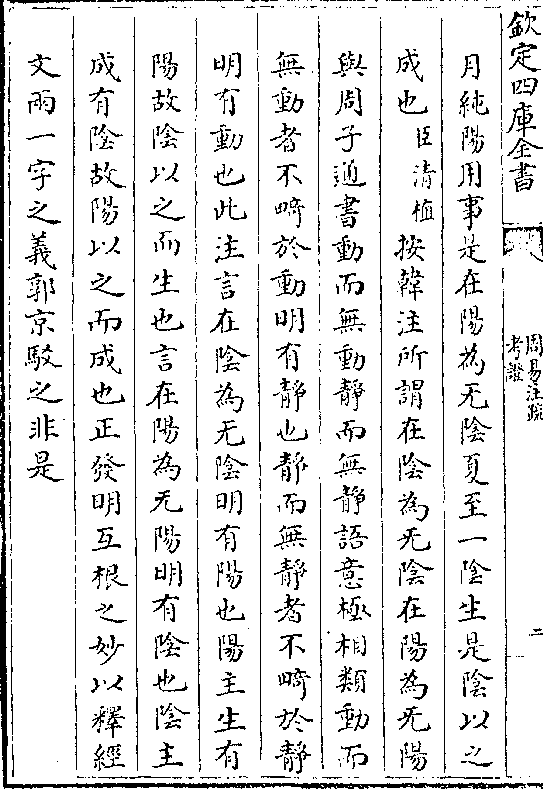 欽定四庫全書
周易注疏
考證
二
月純陽用事是在陽為无陰夏至一陰生是陰以之
成也臣清植按韓注所謂在陰為无陰在陽為无陽
與周子通書動而無動靜而無靜語意極相類動而
無動者不畸於動明有靜也靜而無靜者不畸於靜
明有動也此注言在陰為无陰明有陽也陽主生有
陽故陰以之而生也言在陽為无陽明有陰也陰主
成有陰故陽以之而成也正發明互根之妙以釋經
文兩一字之義郭京駁之非是